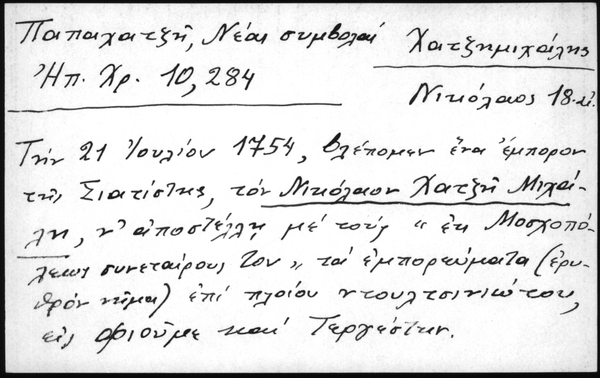 Παπαχατζῆ, Νέαι συμβολαί
Ἠπ. Χρ. 10, 284
Χατζημιχάλης
Νικόλαος 18. αἰ.
Τὴν 21 Ἰουλίου 1754, βλέπομεν ἕνα ἔμπορον
τῆς Σιατίστης, τὸν Νικόλαον Χατζῆ Μιχά-
λη, ν' ἀποστέλλῃ μὲ τοὺς „ ἐκ Μοσχοπό-
λεως συνεταίρους του „ τὰ ἐμπορεύματα (ἐρυ-
θρόν νῆμα) ἐπὶ πλοίου ντουλτσινιώτου,
εἰς Φιοῦμε καὶ Τεργέστην.